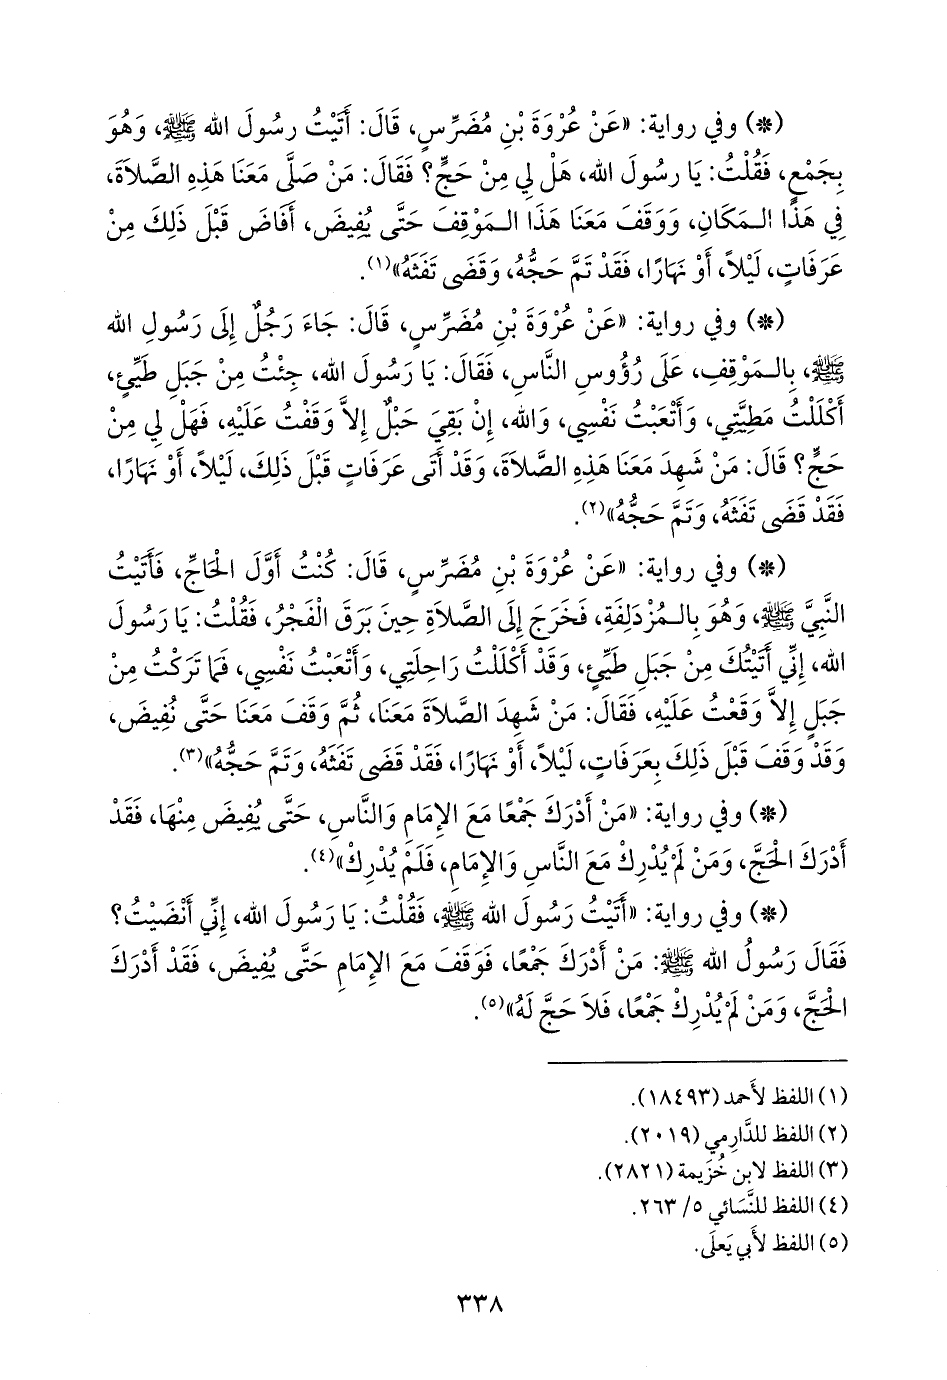 (*) وفي رواية: «عَنْ عُرْوَةَ بْنِ مُضَرِّسٍ، قَالَ: أَتَيْتُ رسُولَ الله ﷺ، وَهُوَ
بِجَمْعٍ، فَقُلْتُ: يَا رسُولَ الله، هَلْ لِي مِنْ حَجٍّ؟ فَقَالَ: مَنْ صَلَّى مَعَنَا هَذِهِ الصَّلاَةَ،
فِي هَذَا الـمَكَانِ، وَوَقَفَ مَعَنَا هَذَا الـمَوْقِفَ حَتَّى يُفِيضَ، أَفَاضَ قَبْلَ ذَلِكَ مِنْ
عَرَفَاتٍ، لَيْلاً، أَوْ نَهَارًا، فَقَدْ تَمَّ حَجُّهُ، وَقَضَى تَفَثَهُ»(١).
(*) وفي رواية: «عَنْ عُرْوَةَ بْنِ مُضَرِّسٍ، قَالَ: جَاءَ رَجُلٌ إِلَى رَسُولِ الله
ﷺ، بِالـمَوْقِفِ، عَلَى رُؤُوسِ النَّاسِ، فَقَالَ: يَا رَسُولَ الله، جِئْتُ مِنْ جَبَلِ طَيِّئٍ،
أَكْلَلْتُ مَطِيَّتِي، وَأَتْعَبْتُ نَفْسِي، وَالله، إِنْ بَقِيَ حَبْلٌ إِلاَّ وَقَفْتُ عَلَيْهِ، فَهَلْ لِي مِنْ
حَجٍّ؟ قَالَ: مَنْ شَهِدَ مَعَنَا هَذِهِ الصَّلاَةَ، وَقَدْ أَتَى عَرَفَاتٍ قَبْلَ ذَلِكَ، لَيْلاً، أَوْ نَهَارًا،
فَقَدْ قَضَى تَفَثَهُ، وَتَمَّ حَجُّهُ»(٢).
(*) وفي رواية: «عَنْ عُرْوَةَ بْنِ مُضَرِّسٍ، قَالَ: كُنْتُ أَوَّلَ الْحَاجِّ، فَأَتَيْتُ
النَّبِيَّ ﷺ، وَهُوَ بِالـمُزْدَلِفَةِ، فَخَرَجَ إِلَى الصَّلاَةِ حِينَ بَرَقَ الْفَجْرُ، فَقُلْتُ: يَا رَسُولَ
الله، إِنِّي أَتَيْتُكَ مِنْ جَبَلِ طَيِّئٍ، وَقَدْ أَكْلَلْتُ رَاحِلَتِي، وَأَتْعَبْتُ نَفْسِي، فَمَا تَرَكْتُ مِنْ
جَبَلٍ إِلاَّ وَقَعْتُ عَلَيْهِ، فَقَالَ: مَنْ شَهِدَ الصَّلاَةَ مَعَنَا، ثُمَّ وَقَفَ مَعَنَا حَتَّى نُفِيضَ،
وَقَدْ وَقَفَ قَبْلَ ذَلِكَ بِعَرَفَاتٍ، لَيْلاً، أَوْ نَهَارًا، فَقَدْ قَضَى تَفَثَهُ، وَتَمَّ حَجُّهُ»(٣).
(*) وفي رواية: «مَنْ أَدْرَكَ جَمْعًا مَعَ الإِمَامِ وَالنَّاسِ، حَتَّى يُفِيضَ مِنْهَا، فَقَدْ
أَدْرَكَ الْحَجَّ، وَمَنْ لَمْ يُدْرِكْ مَعَ النَّاسِ وَالإِمَامِ، فَلَمْ يُدْرِكْ»(٤).
(*) وفي رواية: «أَتَيْتُ رَسُولَ الله ﷺ، فَقُلْتُ: يَا رَسُولَ الله، إِنِّي أَنْضَيْتُ؟
فَقَالَ رَسُولُ الله ﷺ: مَنْ أَدْرَكَ جَمْعًا، فَوَقَفَ مَعَ الإِمَامِ حَتَّى يُفِيضَ، فَقَدْ أَدْرَكَ
الْحَجَّ، وَمَنْ لَمْ يُدْرِكْ جَمْعًا، فَلاَ حَجَّ لَهُ»(٥).
(١) اللفظ لأَحمد (١٨٤٩٣).
(٢) اللفظ للدَّارِمي (٢٠١٩).
(٣) اللفظ لابن خُزَيمة (٢٨٢١).
(٤) اللفظ للنَّسَائي ٥/ ٢٦٣.
(٥) اللفظ لأَبي يَعلَى.
٣٣٨